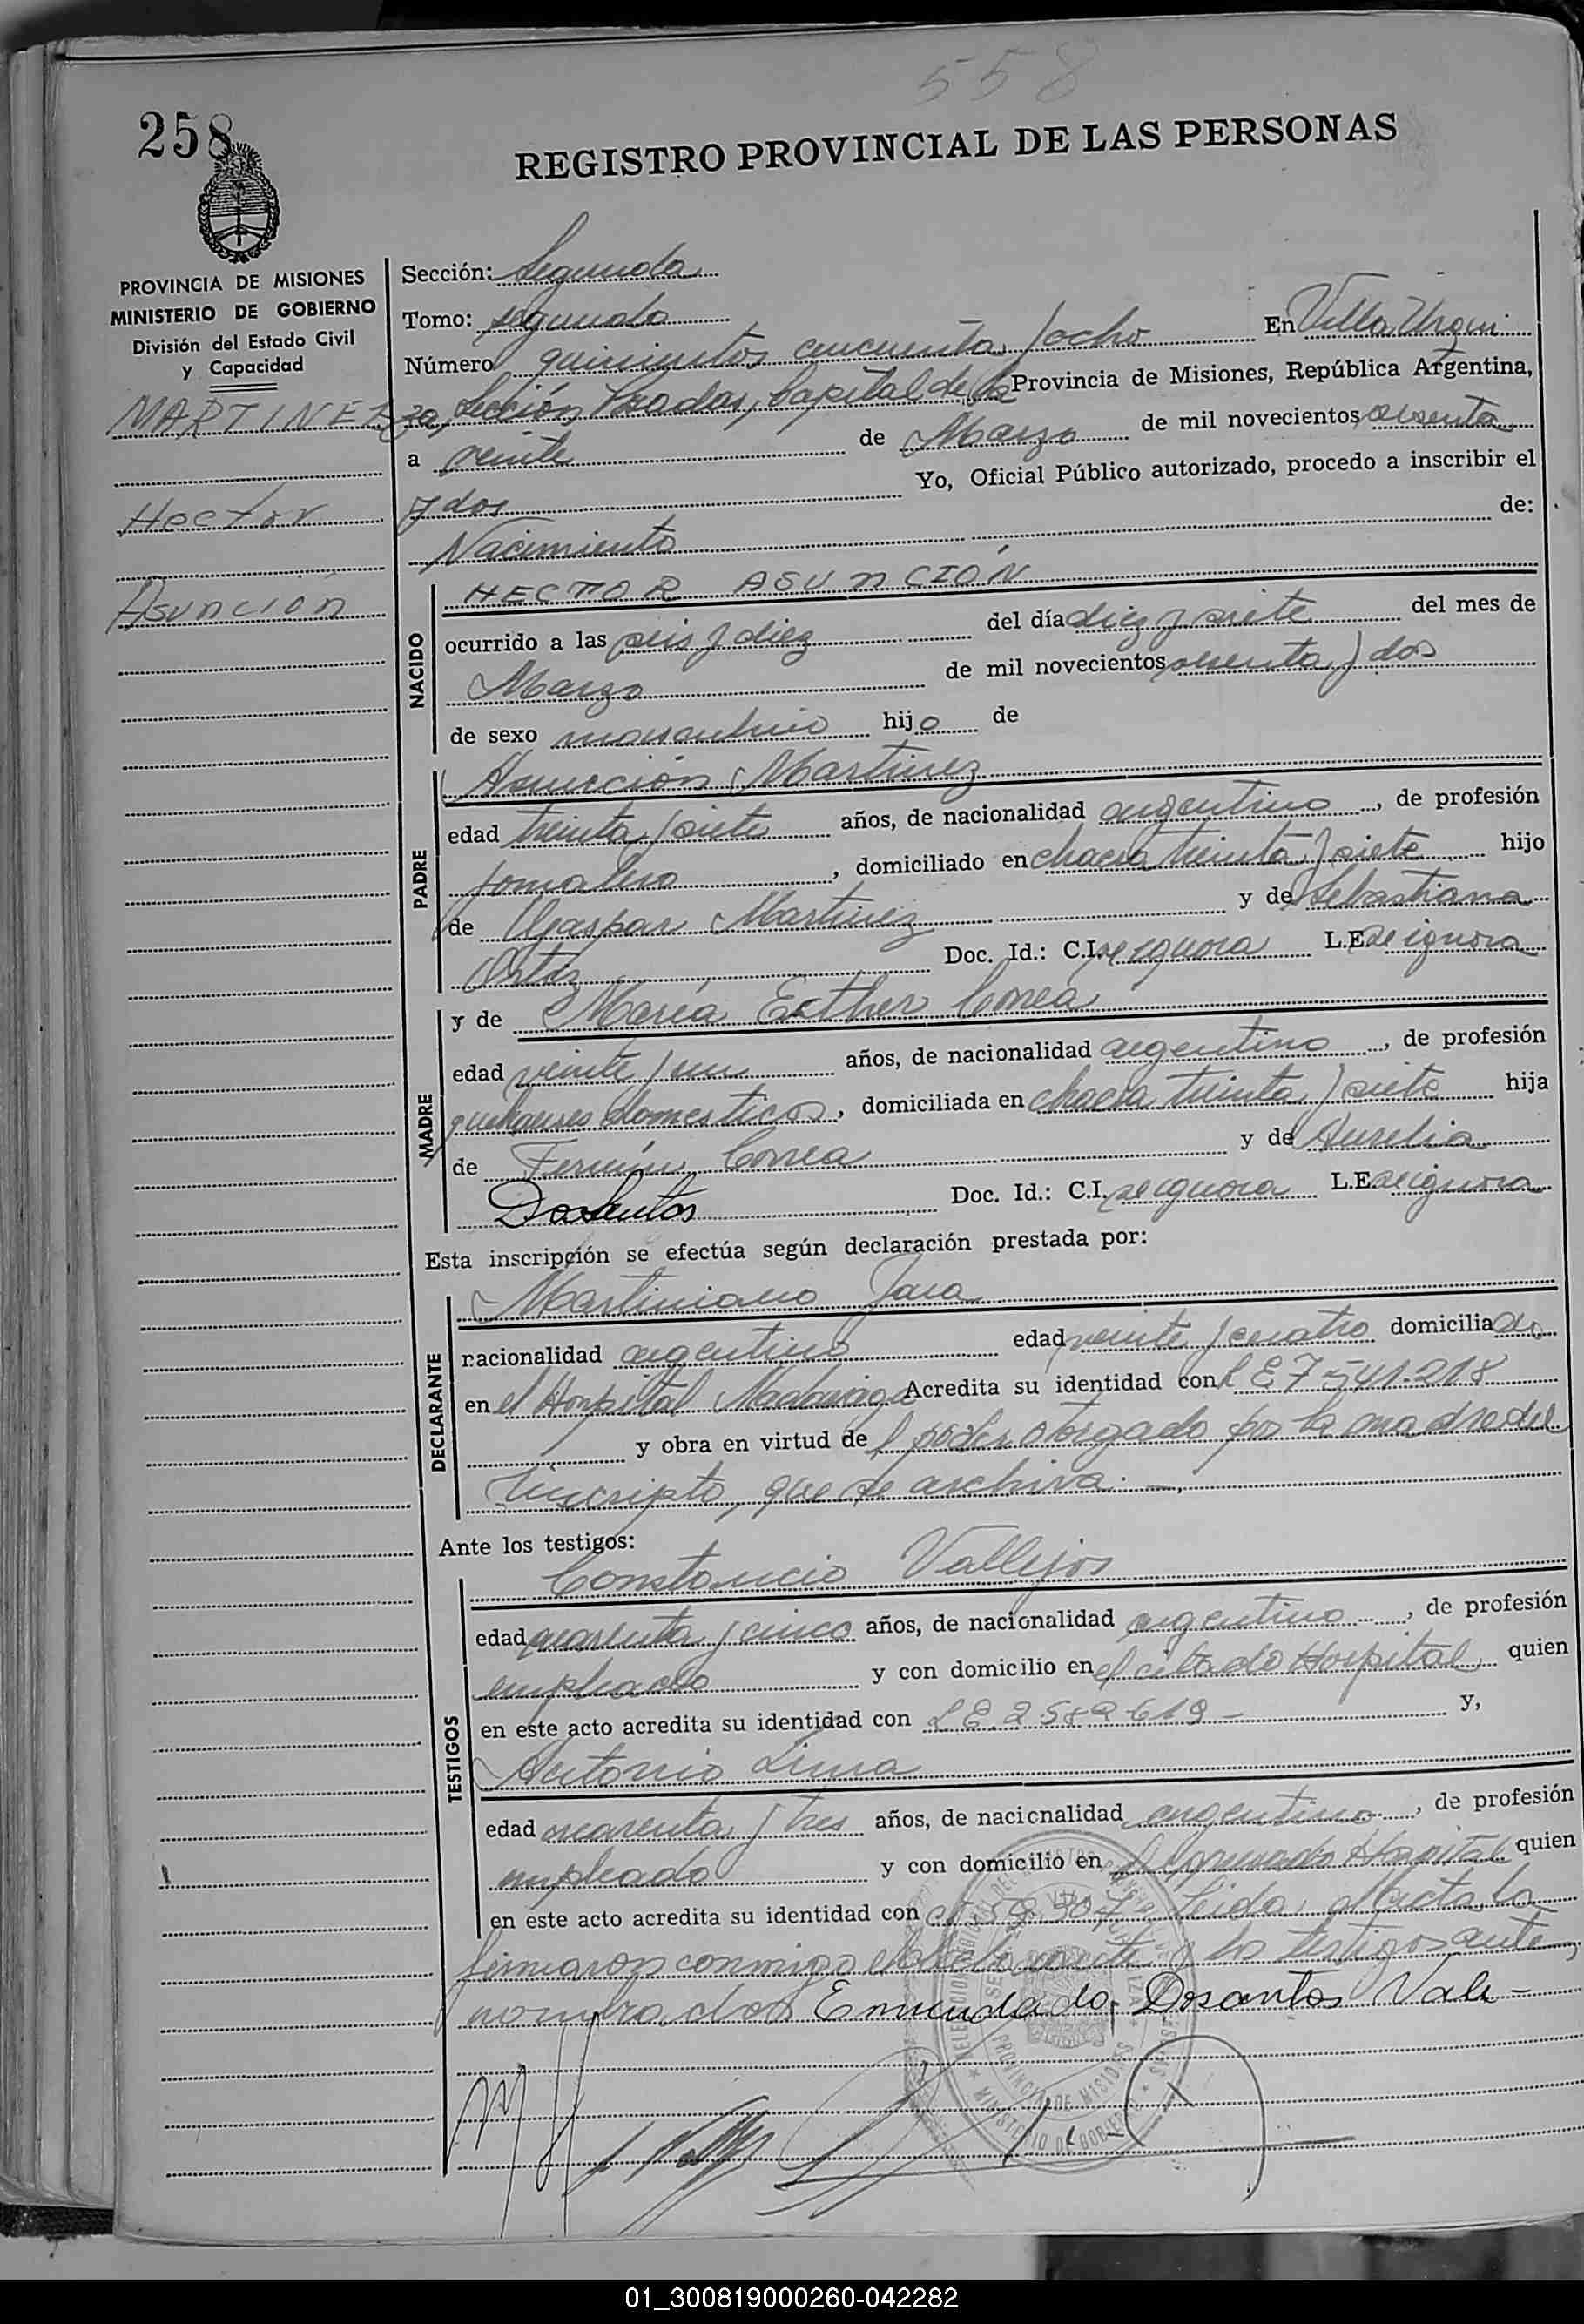 558
258
REGISTRO PROVINCIAL DE LAS PERSONAS
PROVINCIA DE MISIONES
MINISTERIO DE GOBIERNO
División del Estado Civil
y Capacidad
MARTINEZ
Hector
Asunción
Sección: Segunda
Tomo: segundo
Número quinientos cincuenta y ocho En Villa Urqui
za, Sección Posadas, Capital de la Provincia de Misiones, República Argentina,
a veinte de Marzo de mil novecientos sesenta
y dos Yo, Oficial Público autorizado, procedo a inscribir el
Nacimiento de:
NACIDO
HECTOR ASUNCIÓN
ocurrido a las seis y diez del día diez y siete del mes de
Marzo de mil novecientos sesenta y dos
de sexo masculino hijo de
PADRE
Asunción Martinez
edad treinta y siete años, de nacionalidad argentino, de profesión
jornalero, domiciliado en chacra treinta y siete hijo
de Gaspar Martinez y de Sebastiana
Ortiz Doc. Id.: C.I. se ignora L.E. se ignora
MADRE
y de María Esther Correa
edad veinte y un años, de nacionalidad argentino, de profesión
quehaceres domesticos, domiciliada en chacra treinta y siete hija
de Fermín Correa y de Aurelia
Dosantos Doc. Id.: C.I. se ignora L.E. se ignora
Esta inscripción se efectúa según declaración prestada por:
DECLARANTE
Martiniano Jara
nacionalidad argentino edad veinte y cuatro domiciliado
en el Hospital Madariaga Acredita su identidad con L E 7541.218
y obra en virtud de l poder otorgado por la madre del
inscripto, que se archiva.—
Ante los testigos:
TESTIGOS
Constancio Vallejos
edad cuarenta y cinco años, de nacionalidad argentino, de profesión
empleado y con domicilio en el citado Hospital quien
en este acto acredita su identidad con L E. 2589619 - y,
Antonio Lima
edad cuarenta y tres años, de nacionalidad argentino, de profesión
empleado y con domicilio en el Hospital quien
en este acto acredita su identidad con Leida el acta, la
firmaron conmigo el declarante y los testigos ante,
nombrados Enmendado, Dosantos Vale -
PROVINCIA DE MISIONES
MINISTERIO DE GOBIERNO
01_300819000260-042282